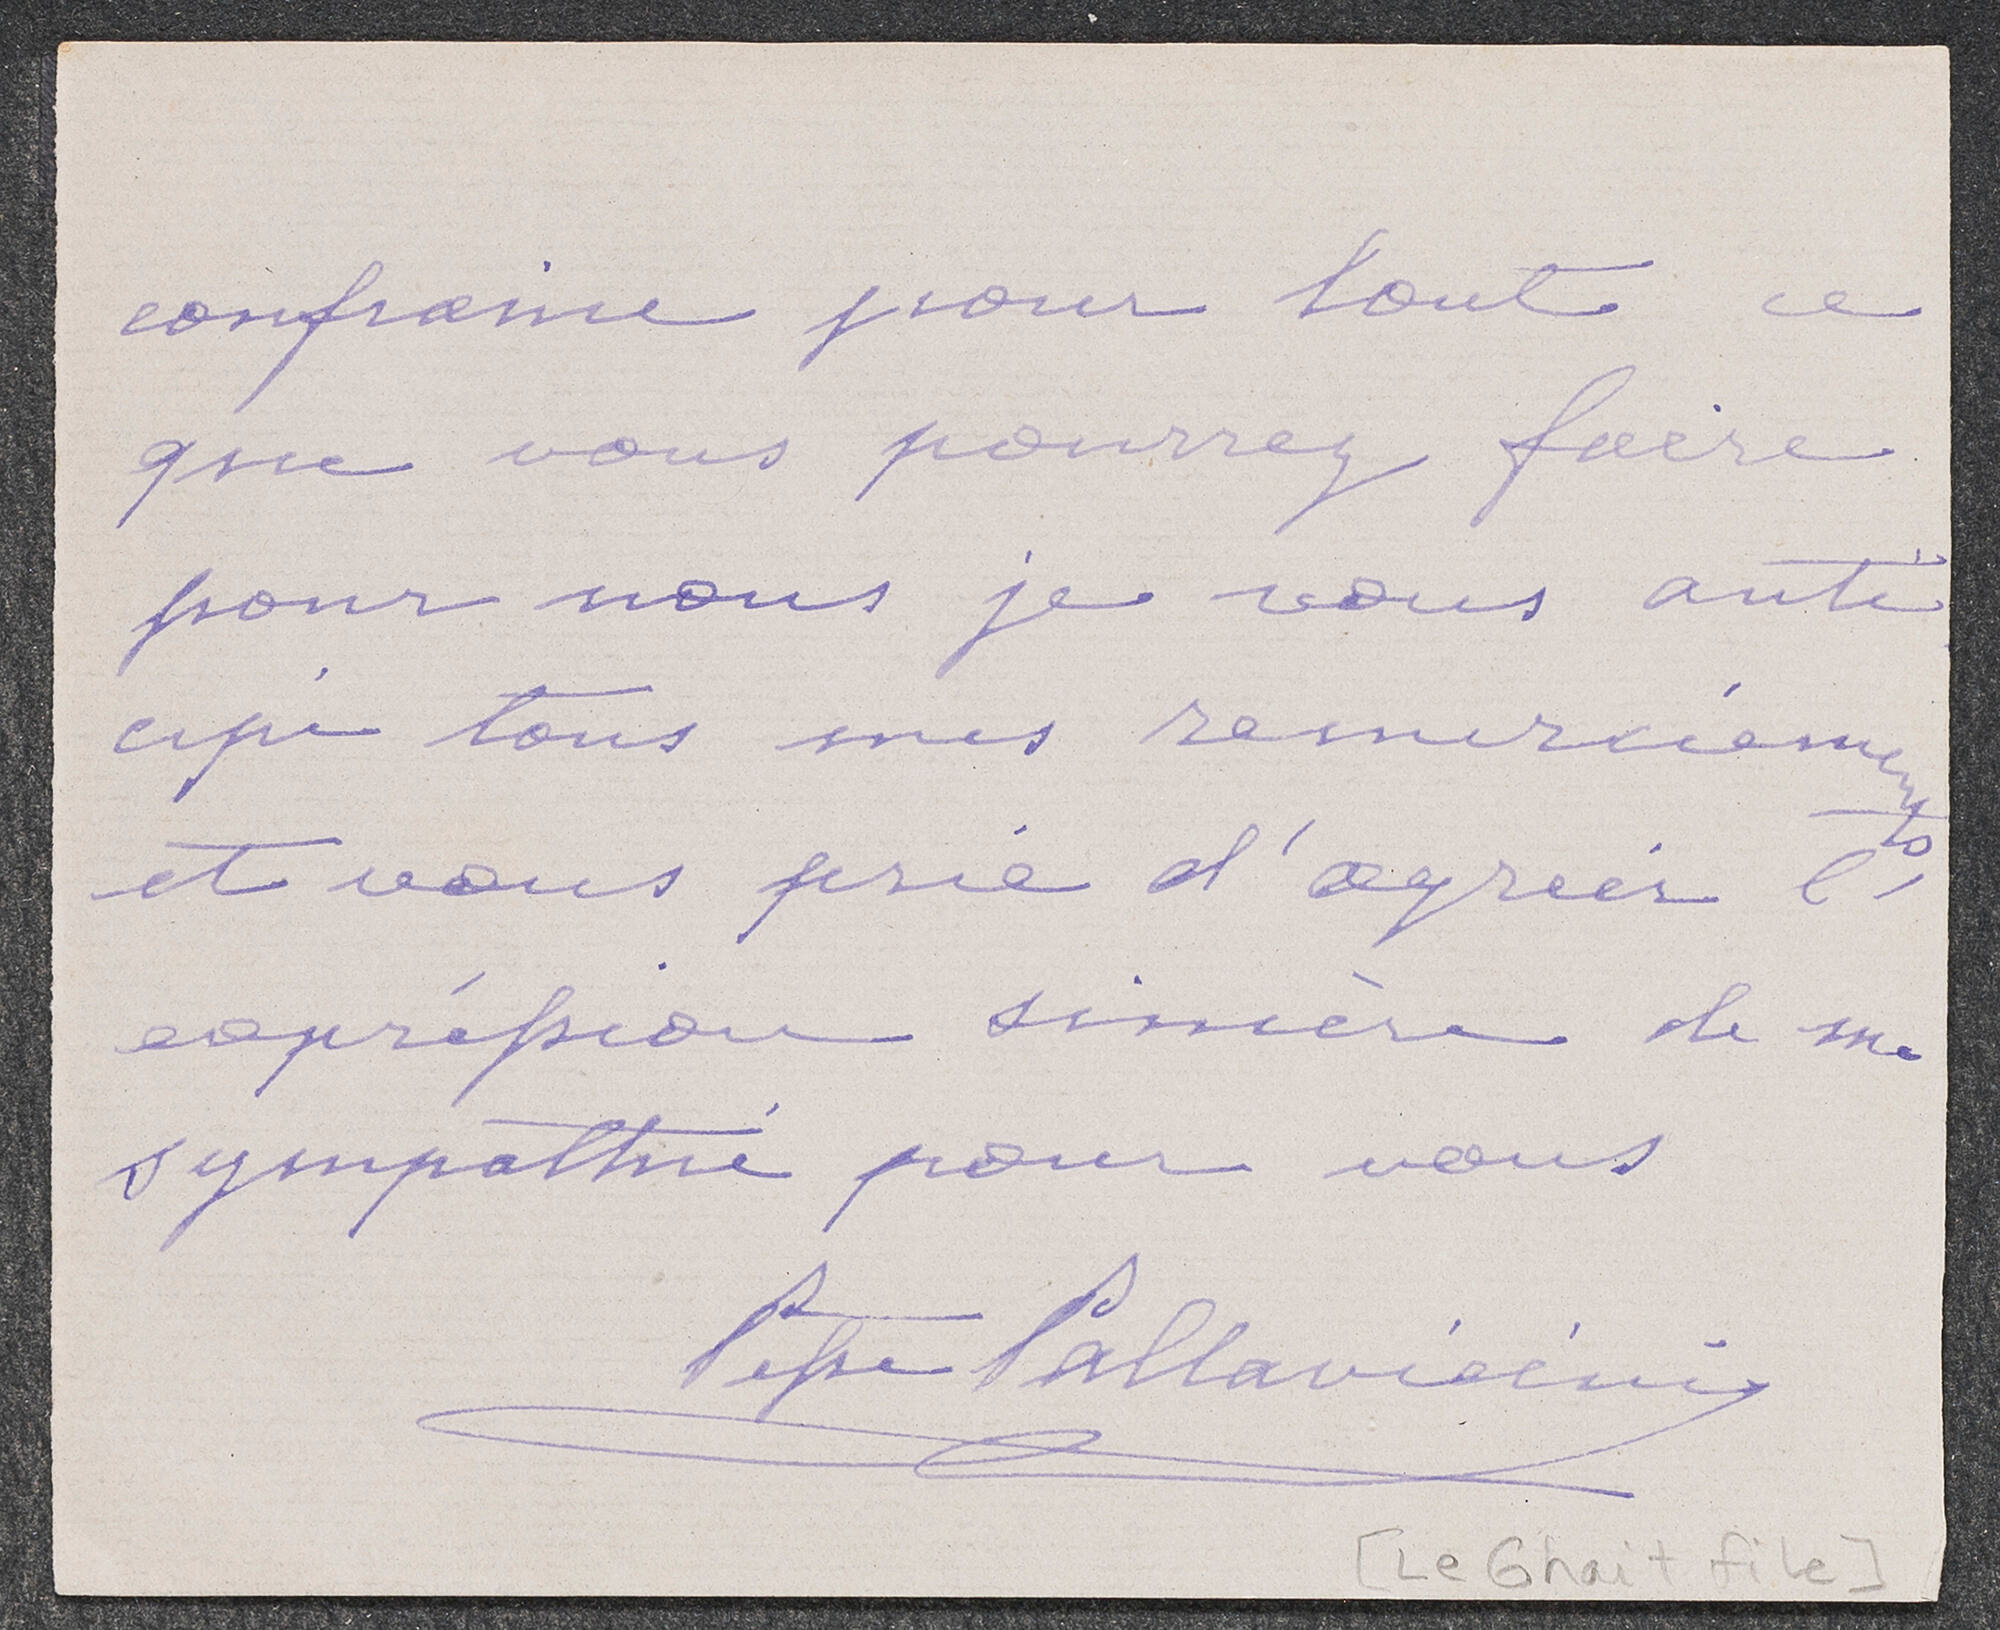 confraine pour tout ce
que vous pourrez faire
pour nous je vous anti
cipe tous mes remerciements
et vous prie d'agréér l'
expréssion sincère de ma
sympathie pour vous
Pepe Pallavicini
[Le Ghait file]